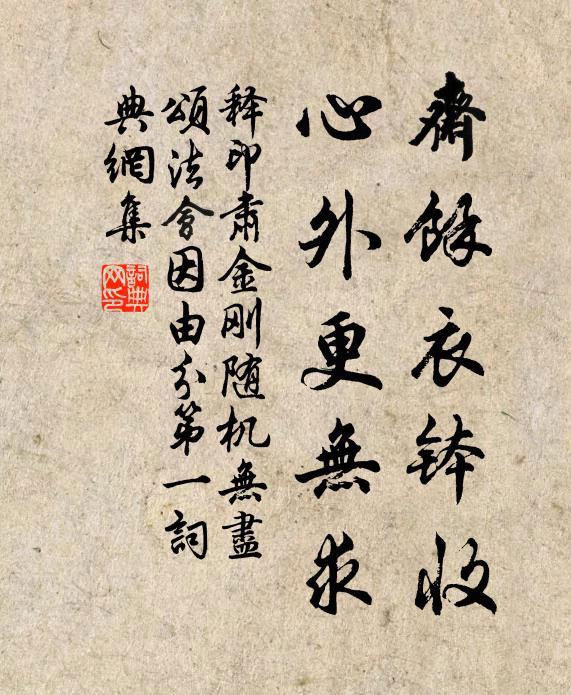 齋餘衣鉢收
心外更無求
释印肃金刚随机無盡
頌法會因由分第一詞
典網集
詞典網印